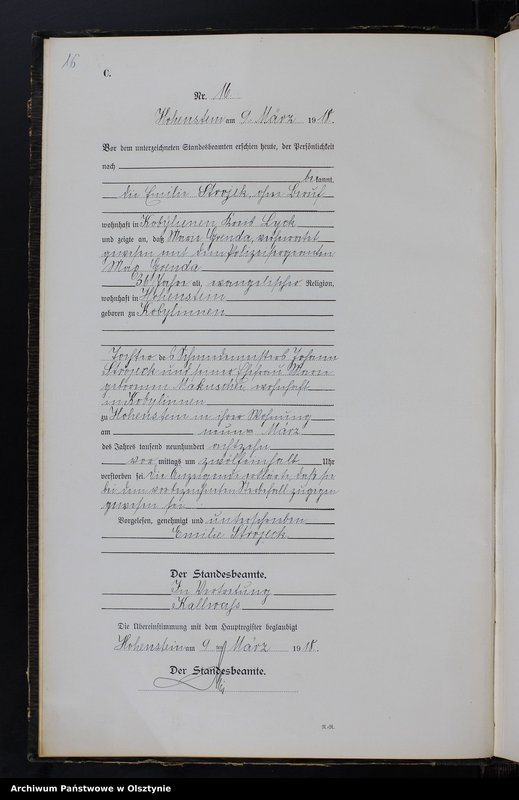 16
C.
Nr. 16
Hohenstein am 9. März 1918.
Vor dem unterzeichneten Standesbeamten erschien heute, der Persönlichkeit
nach
bekannt,
die Emilie Strojek, ohne Beruf
wohnhaft in Kobylinnen Kreis Lyck
und zeigte an, daß Marie Grenda, verheiratet
gewesen mit dem Polizeisergeanten
Max Grenda
36 Jahre alt, evangelischer Religion,
wohnhaft in Hohenstein
geboren zu Kobylinnen
Tochter des Schmiedemeisters Johann
Strojeck und seiner Ehefrau Marie
geborenen Makuschki wohnhaft
in Kobylinnen
zu Hohenstein in ihrer Wohnung
am neunten März
des Jahres tausend neunhundert achtzehn
vormittags um zwölfeinhalb Uhr
verstorben sei. Die Anzeigende erklärte, daß sie
bei dem vorbezeichneten Sterbefall zugegen
gewesen sei.
Vorgelesen, genehmigt und unterschrieben
Emilie Strojeck
Der Standesbeamte.
In Vertretung
Kallwass
Die Übereinstimmung mit dem Hauptregister beglaubigt
Hohenstein am 9. März 1918.
Der Standesbeamte.
Archiwum Państwowe w Olsztynie